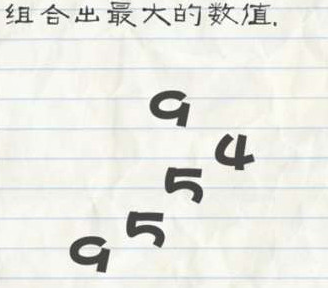 组合出最大的数值.
9
4
5
5
9